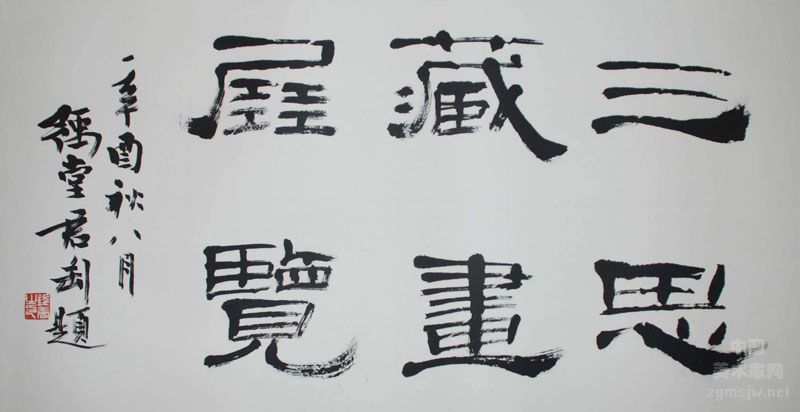 三思
藏畫
展覽
辛酉秋八月
堂君題
中国
美术家网
zgmsjw.net